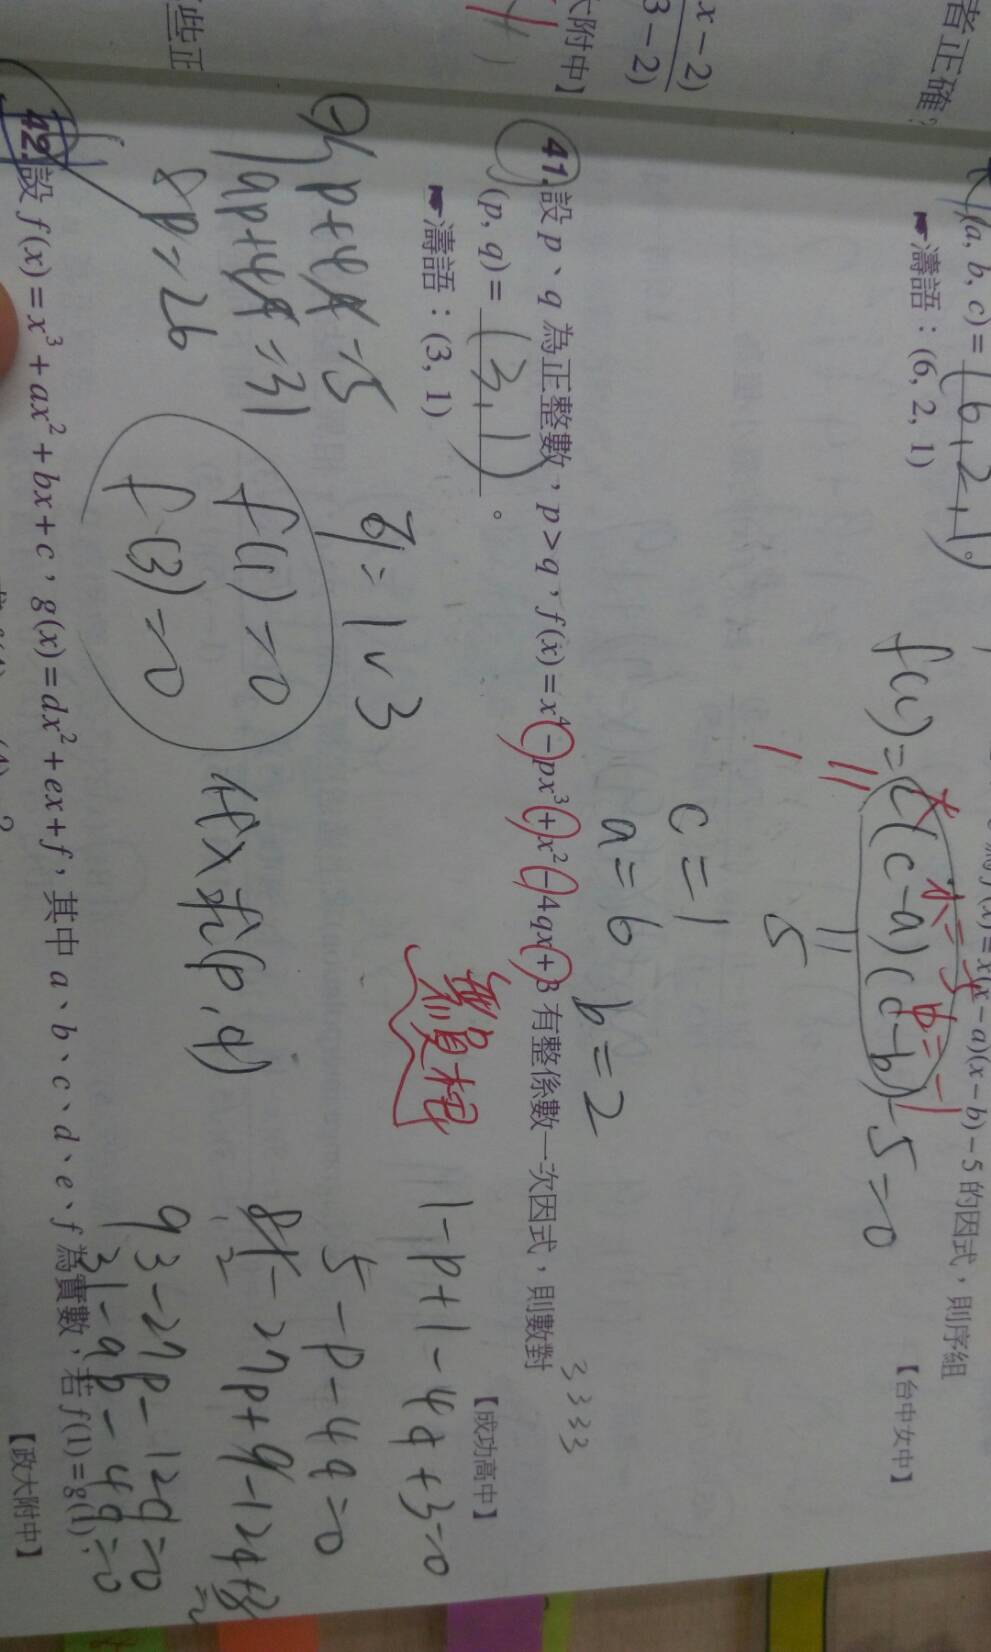 者正確？
x-2)
3-2)
大附中】
些正
f(x)=x(x-a)(x-b)-5的因式，則序組
(a, b, c)=(6,2,1)。
【台中女中】
☛濤語：(6, 2, 1)
f(c)=c(c-a)(c-b)-5=0
1
5
c=1
a=6 b=2
41.設p、q為正整數，p>q，f(x)=x⁴-px³+x²-4qx+3有整係數一次因式，則數對
(p, q)=(3,1)。
【成功高中】
3 3 3 3
☛濤語：(3, 1)
無負根
1-p+1-4q+3=0
5-p-4q=0
81-27p+9-12q+3=0
93-27p-12q=0
31-9p-4q=0
x=1 v 3
p+4q=5
9p+4q=31
8p=26
f(1)=0
f(3)=0
代x求(p,q)
42.設f(x)=x³+ax²+bx+c，g(x)=dx²+ex+f，其中a、b、c、d、e、f為實數，若f(1)=g(1)，
【政大附中】